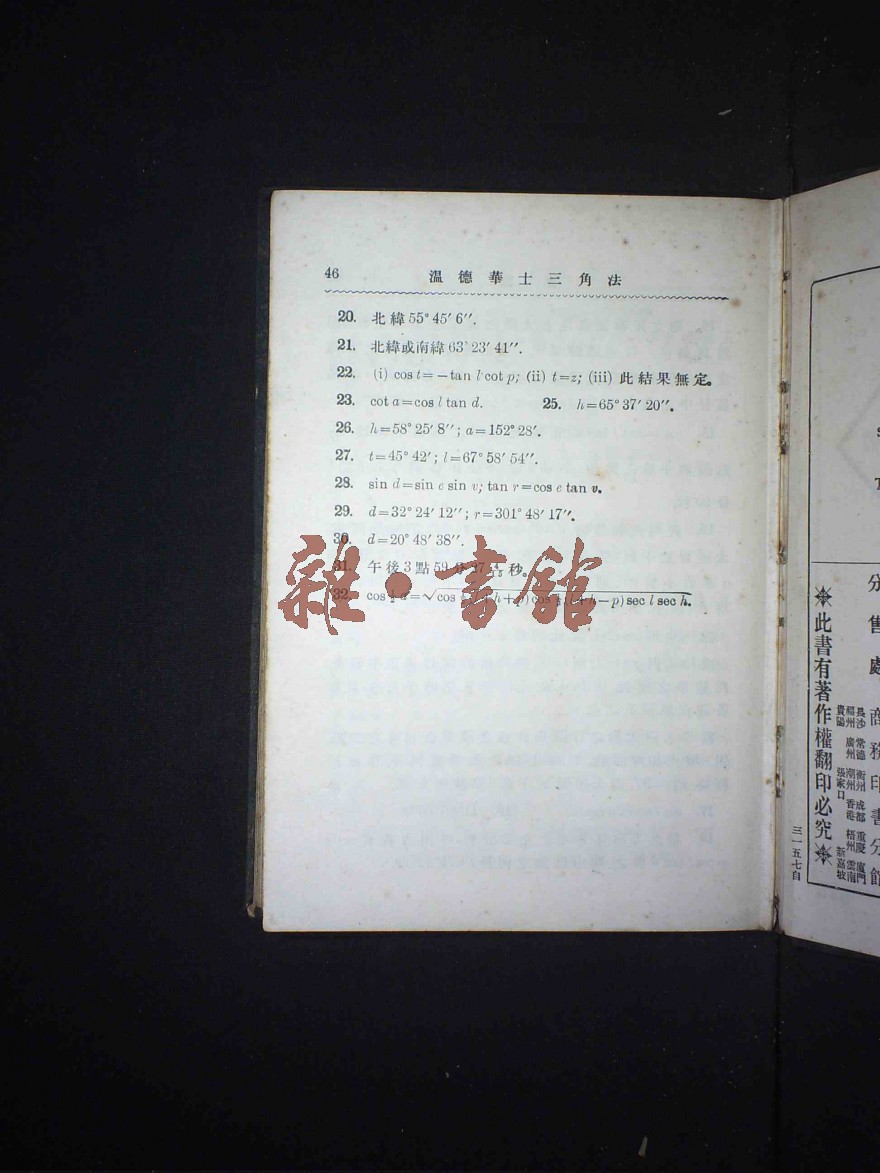 46 溫德華士三角法
20. 北緯 55° 45′ 6″.
21. 北緯或南緯 63° 23′ 41″.
22. (i) cos t=−tan l cot p; (ii) t=z; (iii) 此結果無定。
23. cot a=cos l tan d. 25. h=65° 37′ 20″.
26. h=58° 25′ 8″; a=152° 28′.
27. t=45° 42′; l=67° 58′ 54″.
28. sin d=sin e sin v; tan r=cos e tan v.
29. d=32° 24′ 12″; r=301° 48′ 17″.
30. d=20° 48′ 38″.
31. 午後 3 點 59 分 27 秒。
32. cos ½ a=√cos (l+h+p) cos ½ (l+h−p) sec l sec h.
雜·書館
分售處
商務印書分館
長沙 常德 衡州 成都 重慶 廈門
福州 廣州 潮州 香港 梧州 雲南
貴陽 張家口 新嘉坡
※此書有著作權翻印必究※
三一五七自